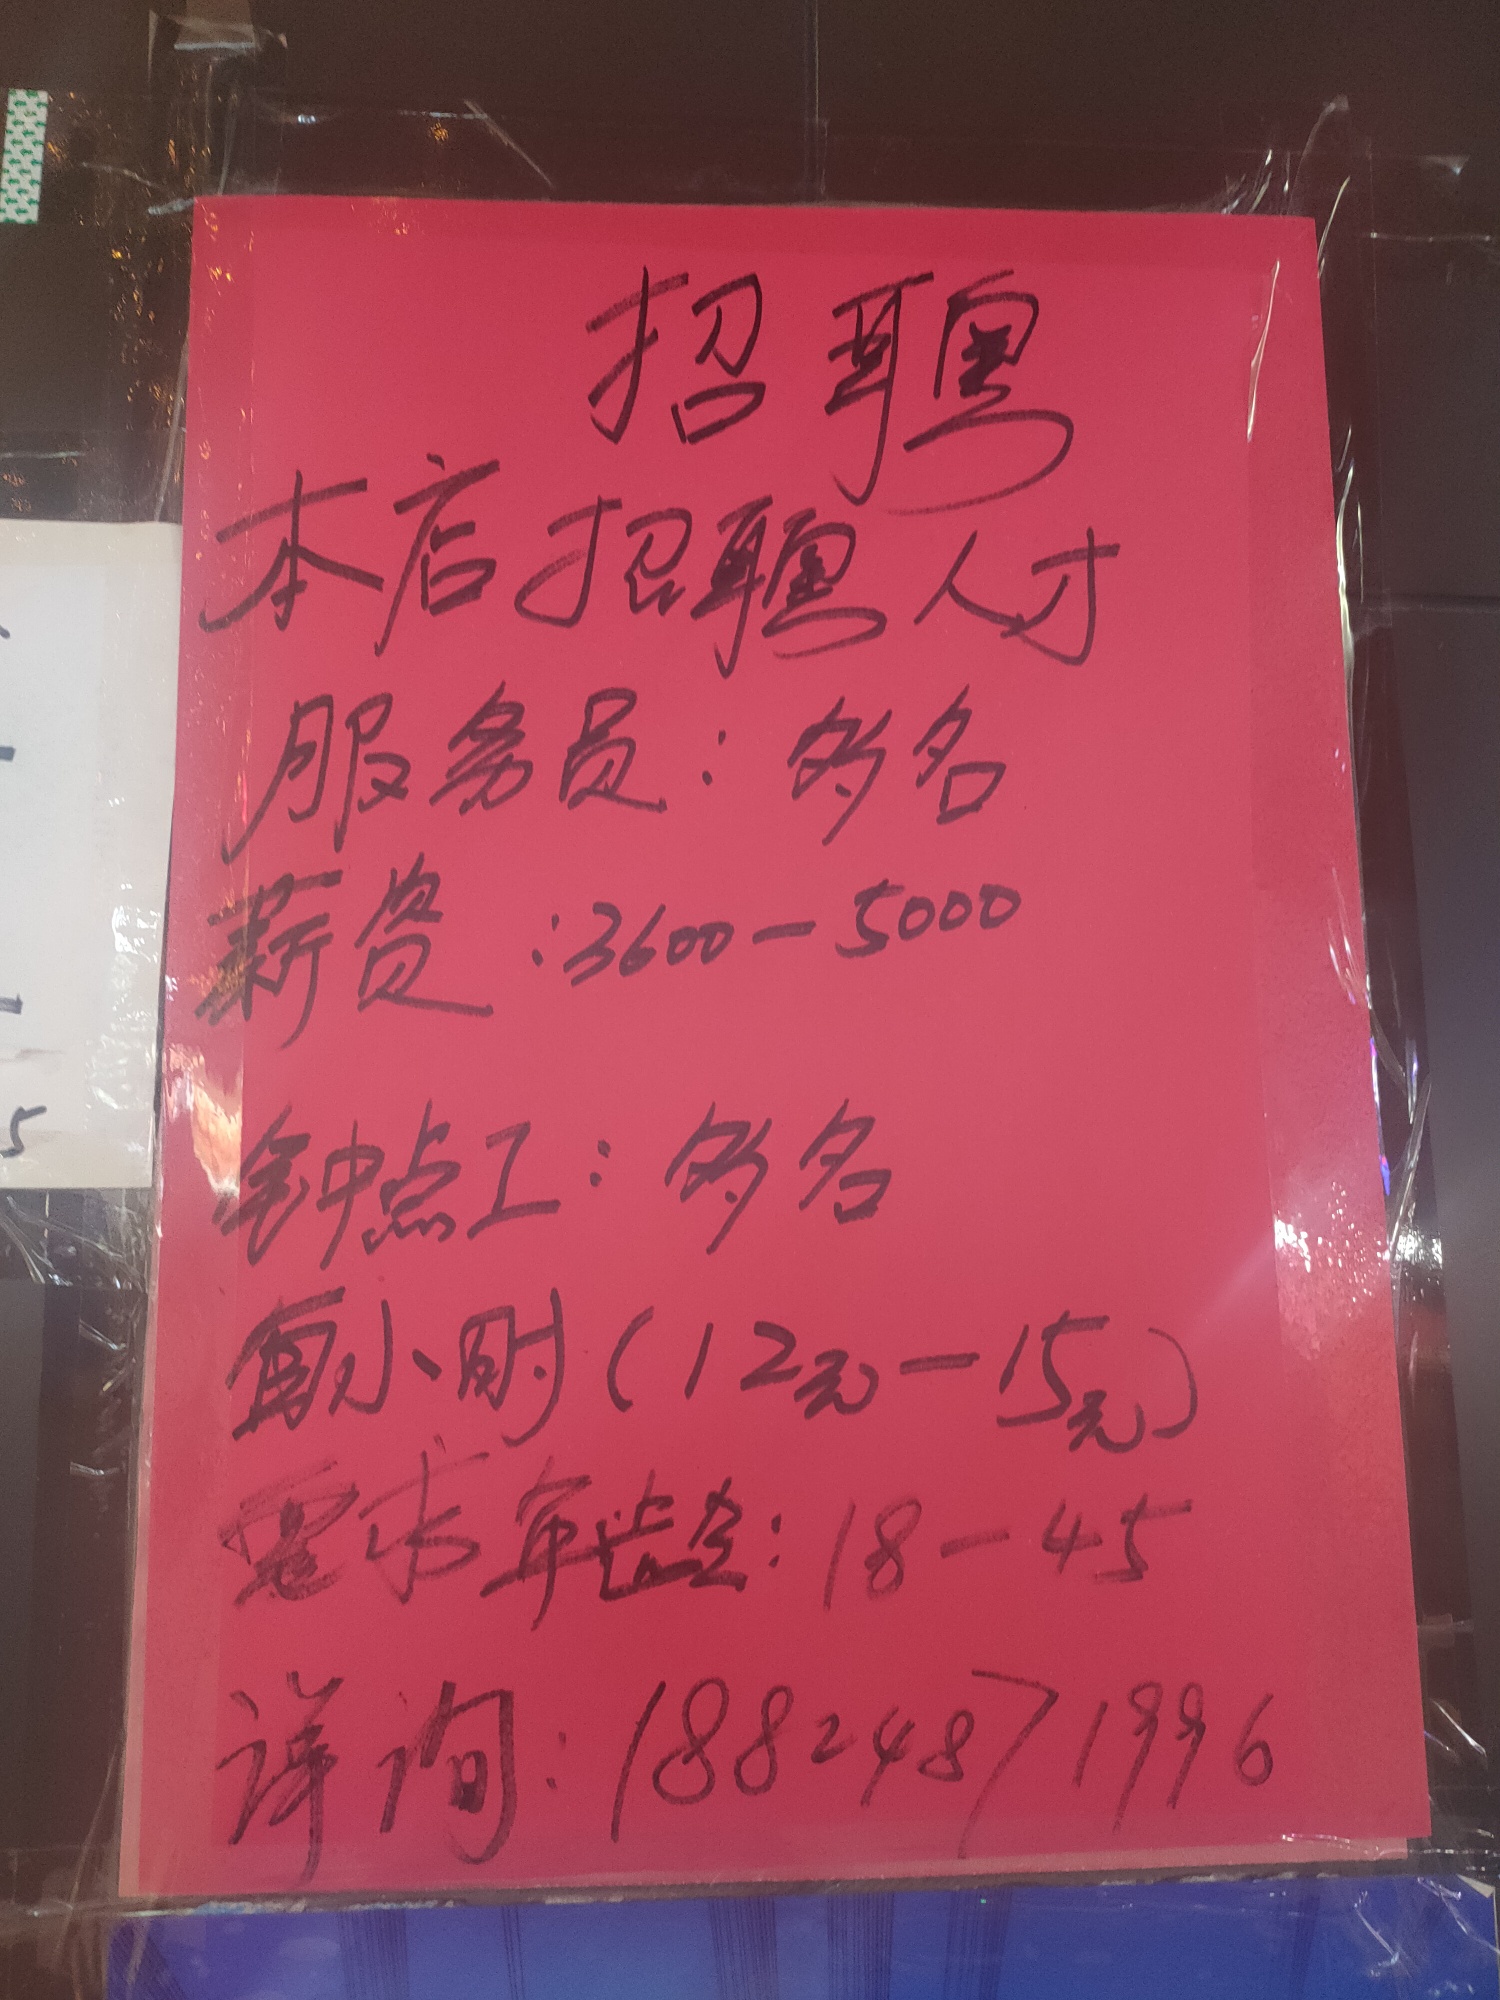 招聘
本店招聘人才
服务员：多名
薪资：3600－5000
钟点工：多名
每小时（12元－15元）
要求年龄：18－45
详询：18824871996
5